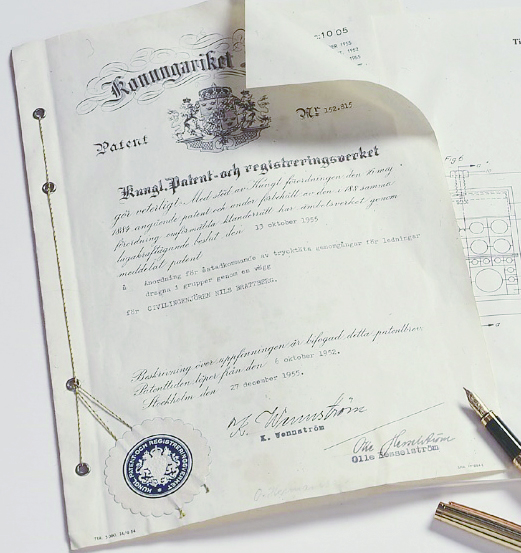 Konungariket
10 05
Patent
Nr 152.815
Kungl. Patent- och registreringsverket
gör veterligt: Med stöd av Kungl. förordningen den 16 maj
1884 angående patent och under förbehåll av den i samma
förordning omförmälda klanderrätt har ämbetsverket genom
lagakraftägande beslut den 13 oktober 1955
meddelat patent
å anordning för åstadkommande av trycktäta genomgångar för ledningar
dragna i grupper genom en vägg
för CIVILINGENJÖREN NILS BRATTBERG.
Beskrivning över uppfinningen är bifogad detta patentbrev.
Patenttiden löper från den 6 oktober 1952.
Stockholm den 27 december 1955.
K. Wennström
K. Wennström
KUNGL. PATENT-OCH REGISTRERINGSVERKET
Fig 6